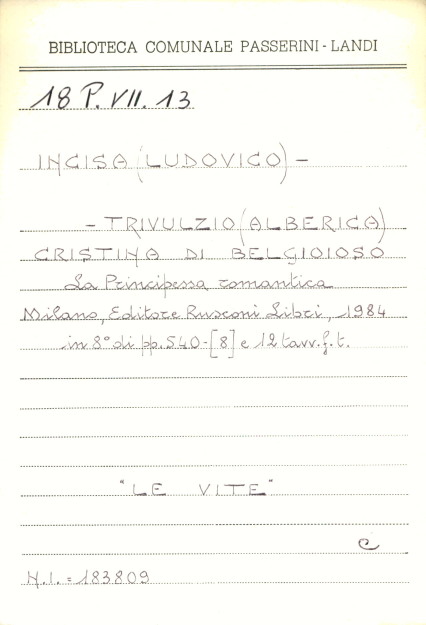 BIBLIOTECA COMUNALE PASSERINI - LANDI
18 P. VII. 13
INCISA (LUDOVICO) -
- TRIVULZIO (ALBERICA)
CRISTINA DI BELGIOIOSO
La Principessa romantica
Milano, Editore Rusconi Libri, 1984
in 8° di pp. 540-[8] e 12 tavv. f. t.
"LE VITE"
C
N.I. = 183809